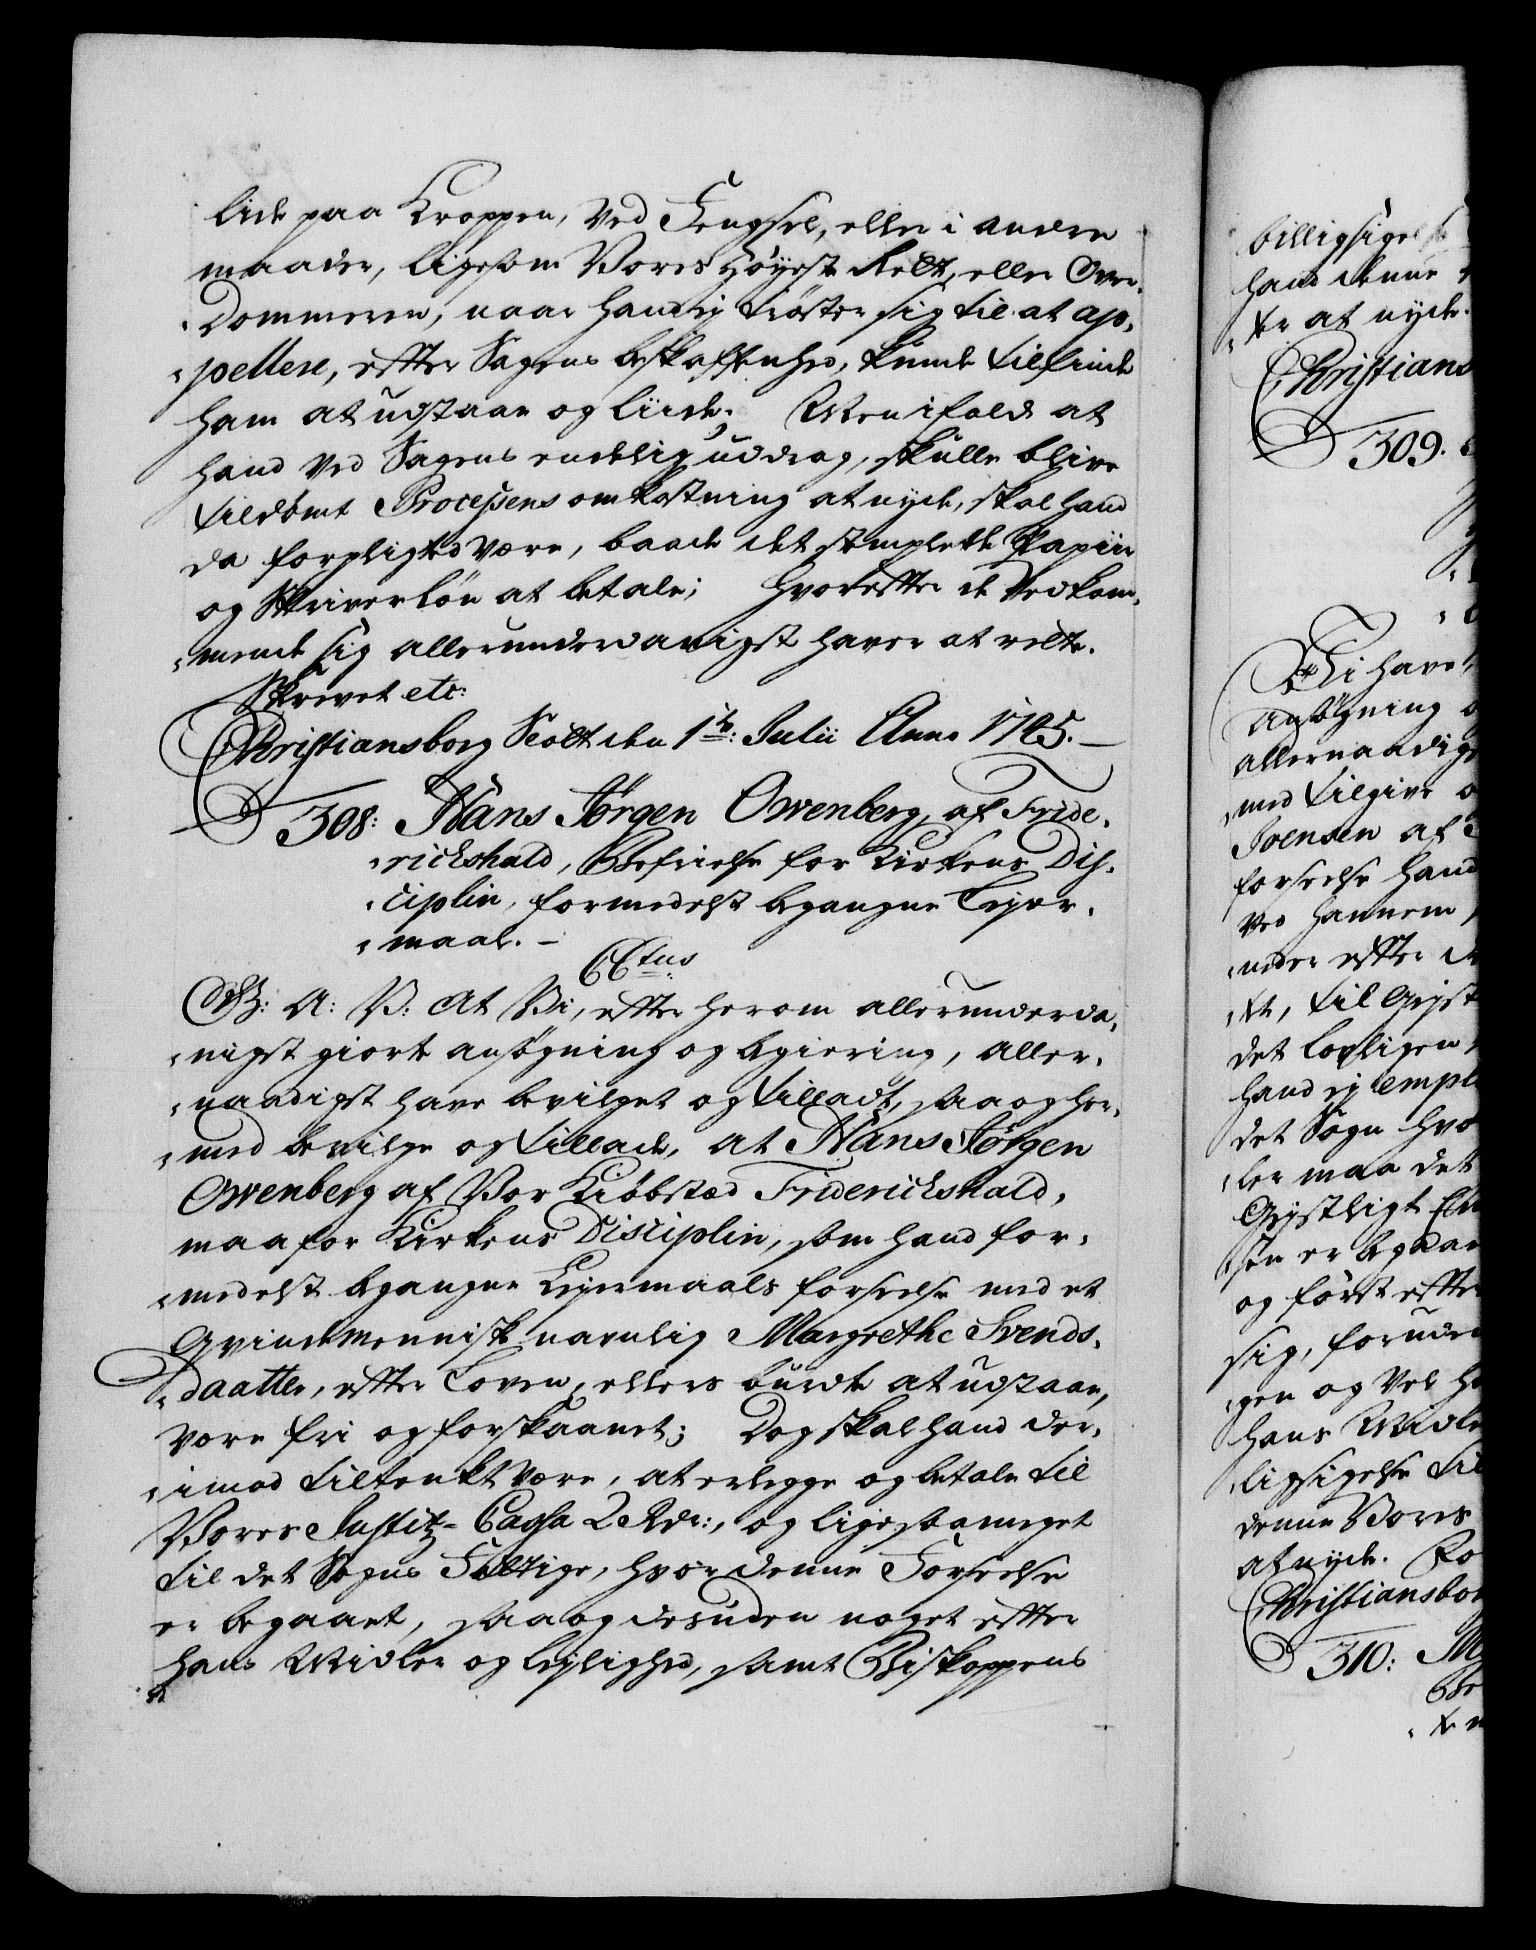 lide paa Kroppen, ved Fengsel, eller i andre
maader, ligesom Vores Høyeste Rett, eller Over-
Dommeren, naar hand ej trøster sig til at ap-
pellere, efter Sagens beskaffenhed, kunde tilfinde
ham at udstaae og liide; Men ifald at
hand ved Sagens endelig uddrag, skulle blive
tildømt Processens omkostning at nyde, skal hand
da forpligted være, baade det stemplede Papiir
og Skriverløn at betale; Hvorefter de Vedkom-
mende sig allerunderdanigst haver at rette.
Skrevet etc:
Christiansborg Slott den 1te: Julii Anno 1745.
308: Hans Jørgen Owenberg, af Fride-
richshald, Befrielse for Kirkens Dis-
ciplin, formedelst begangne Lejer-
maal.
CCtus
G: A: V: At Vi, efter herom allerunderda-
nigst giorte ansøgning og begiering, aller-
naadigst have bevilget og tilladt, saa og her-
med bevilge og tillade, at Hans Jørgen
Owenberg af Vor Kiøbsted Friderichshald,
maa for Kirkens Disciplin, som hand for-
medelst begangne Lejermaals forseelse med et
Qvindemenniske navnlig Margrethe Svends-
daatter, efter Loven, ellers burde at udstaae,
være fri og forskaanet; Dog skal hand der-
imod tiltenkt være, at erlegge og betale til
Vores Justitz-Cassa 2 Rdr:, og ligesaameget
til det Sogns Fattige, hvor denne Forseelse
er begaaet, saa og desuden noget efter
hans Midler og lejlighed, samt Biskoppens
billigsigelse
hand denne
ter at nyde.
Christians
309.
Vi have
ansøgning
allernaadigst
med tilgive
Svensen af
forseelse hand
ved hannem
det lovligen
hand ej
det Sogn hvo
ler maa det
Gejstligt
sen er begaae
og først efter
sig, foruden
gen og vel
hans Midler
ligsigelse til
denne Vores
at nyde.
Christiansbor
310: